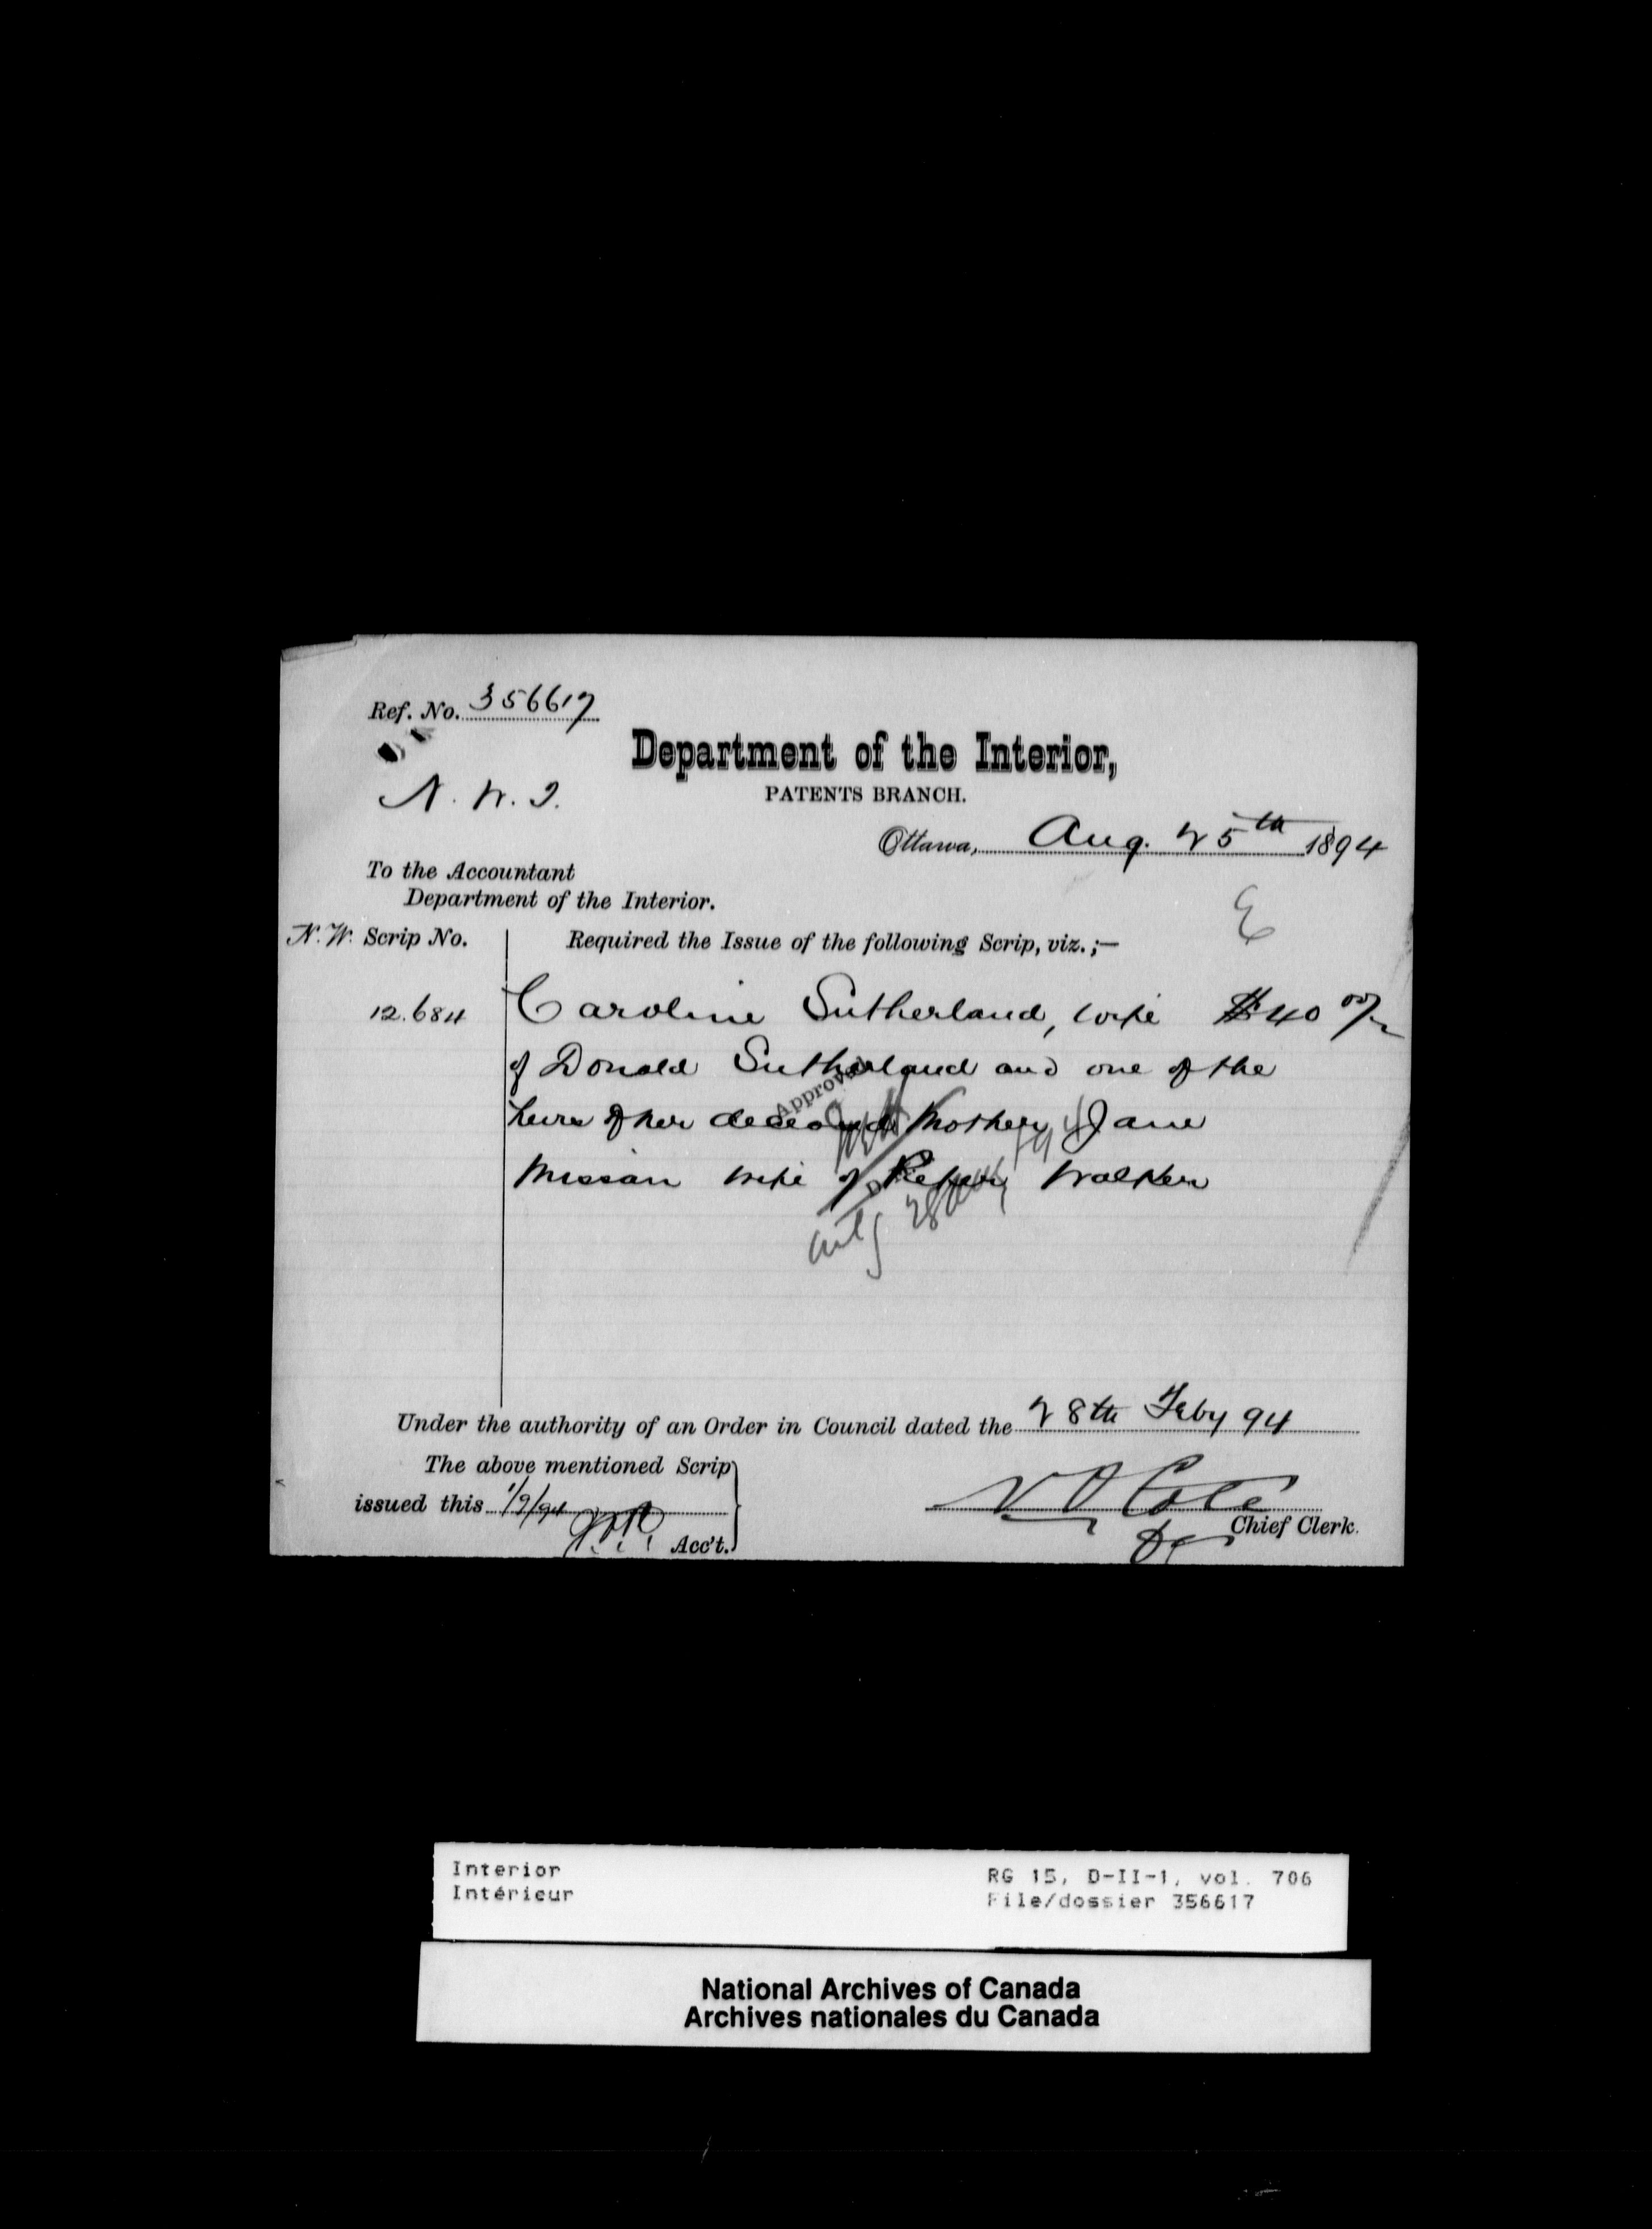 Ref. No. 356617
N. W. T.
Department of the Interior,
PATENTS BRANCH.
Ottawa, Aug. 25th 1894
To the Accountant
Department of the Interior.
E
N. W. Scrip No.
Required the Issue of the following Scrip, viz.;—
12.684
Caroline Sutherland, wife $40 00/
of Donald Sutherland and one of the
heirs of her deceased Mother, Jane
Missan wife of Walker
Approved
28 Aug 94
Under the authority of an Order in Council dated the 28th Feby 94
The above mentioned Scrip
issued this 1/9/94
Acc't.
N O Coté
Chief Clerk.
Interior
Intérieur
RG 15, D-II-1, vol. 706
File/dossier 356617
National Archives of Canada
Archives nationales du Canada